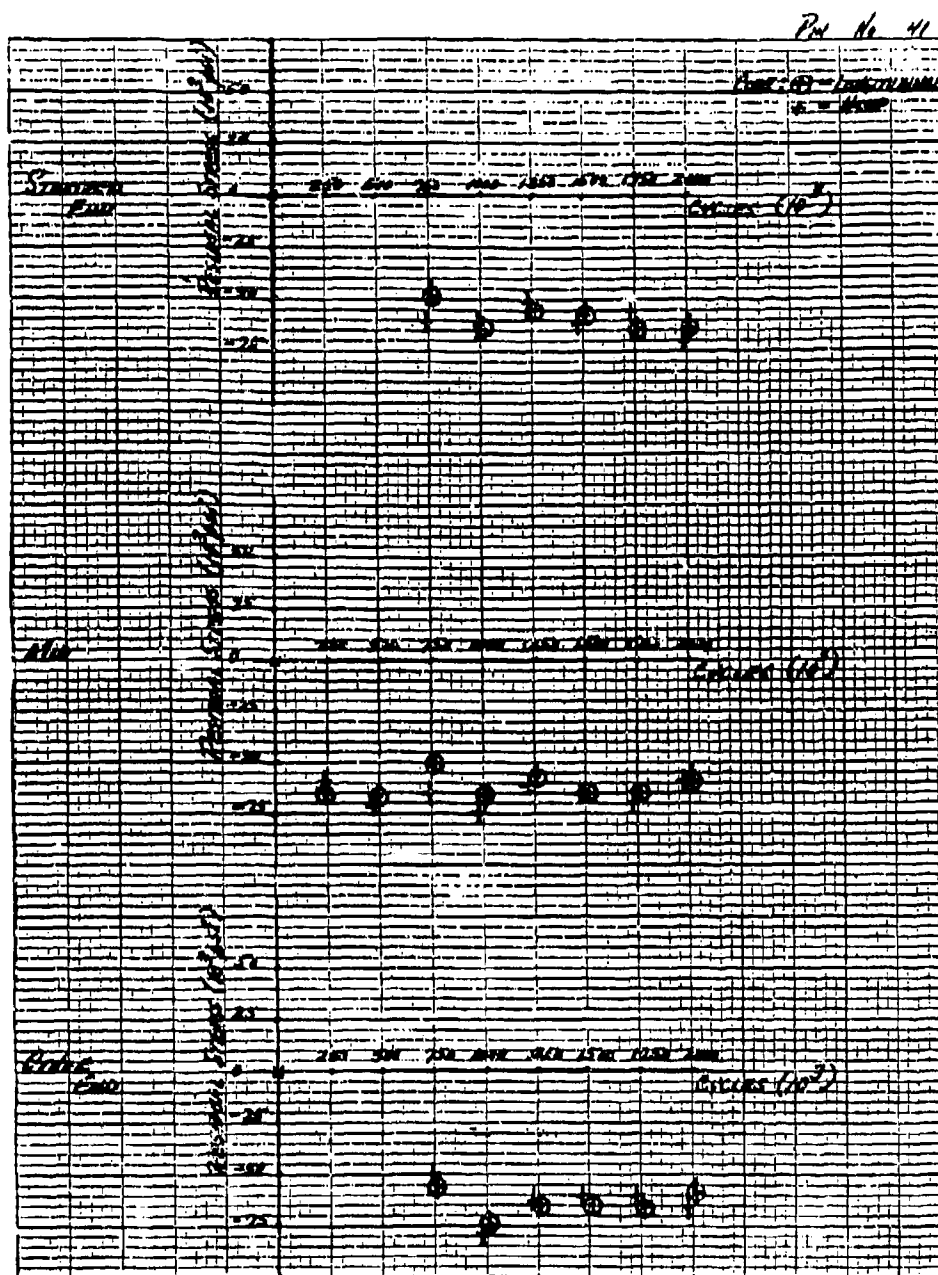 Pin No 41
Code: ⊕ - Longitudinal
+ - Hoop
Residual Stress (10³ psi)
50
25
0
-25
-50
-75
End
250 500 750 1000 1250 1500 1750 2000
Cycles (10³)
Residual Stress (10³ psi)
50
25
Mid
0
-25
-50
-75
250 500 750 1000 1250 1500 1750 2000
Cycles (10³)
Residual Stress (10³ psi)
50
25
End
0
-25
-50
-75
250 500 750 1000 1250 1500 1750 2000
Cycles (10³)